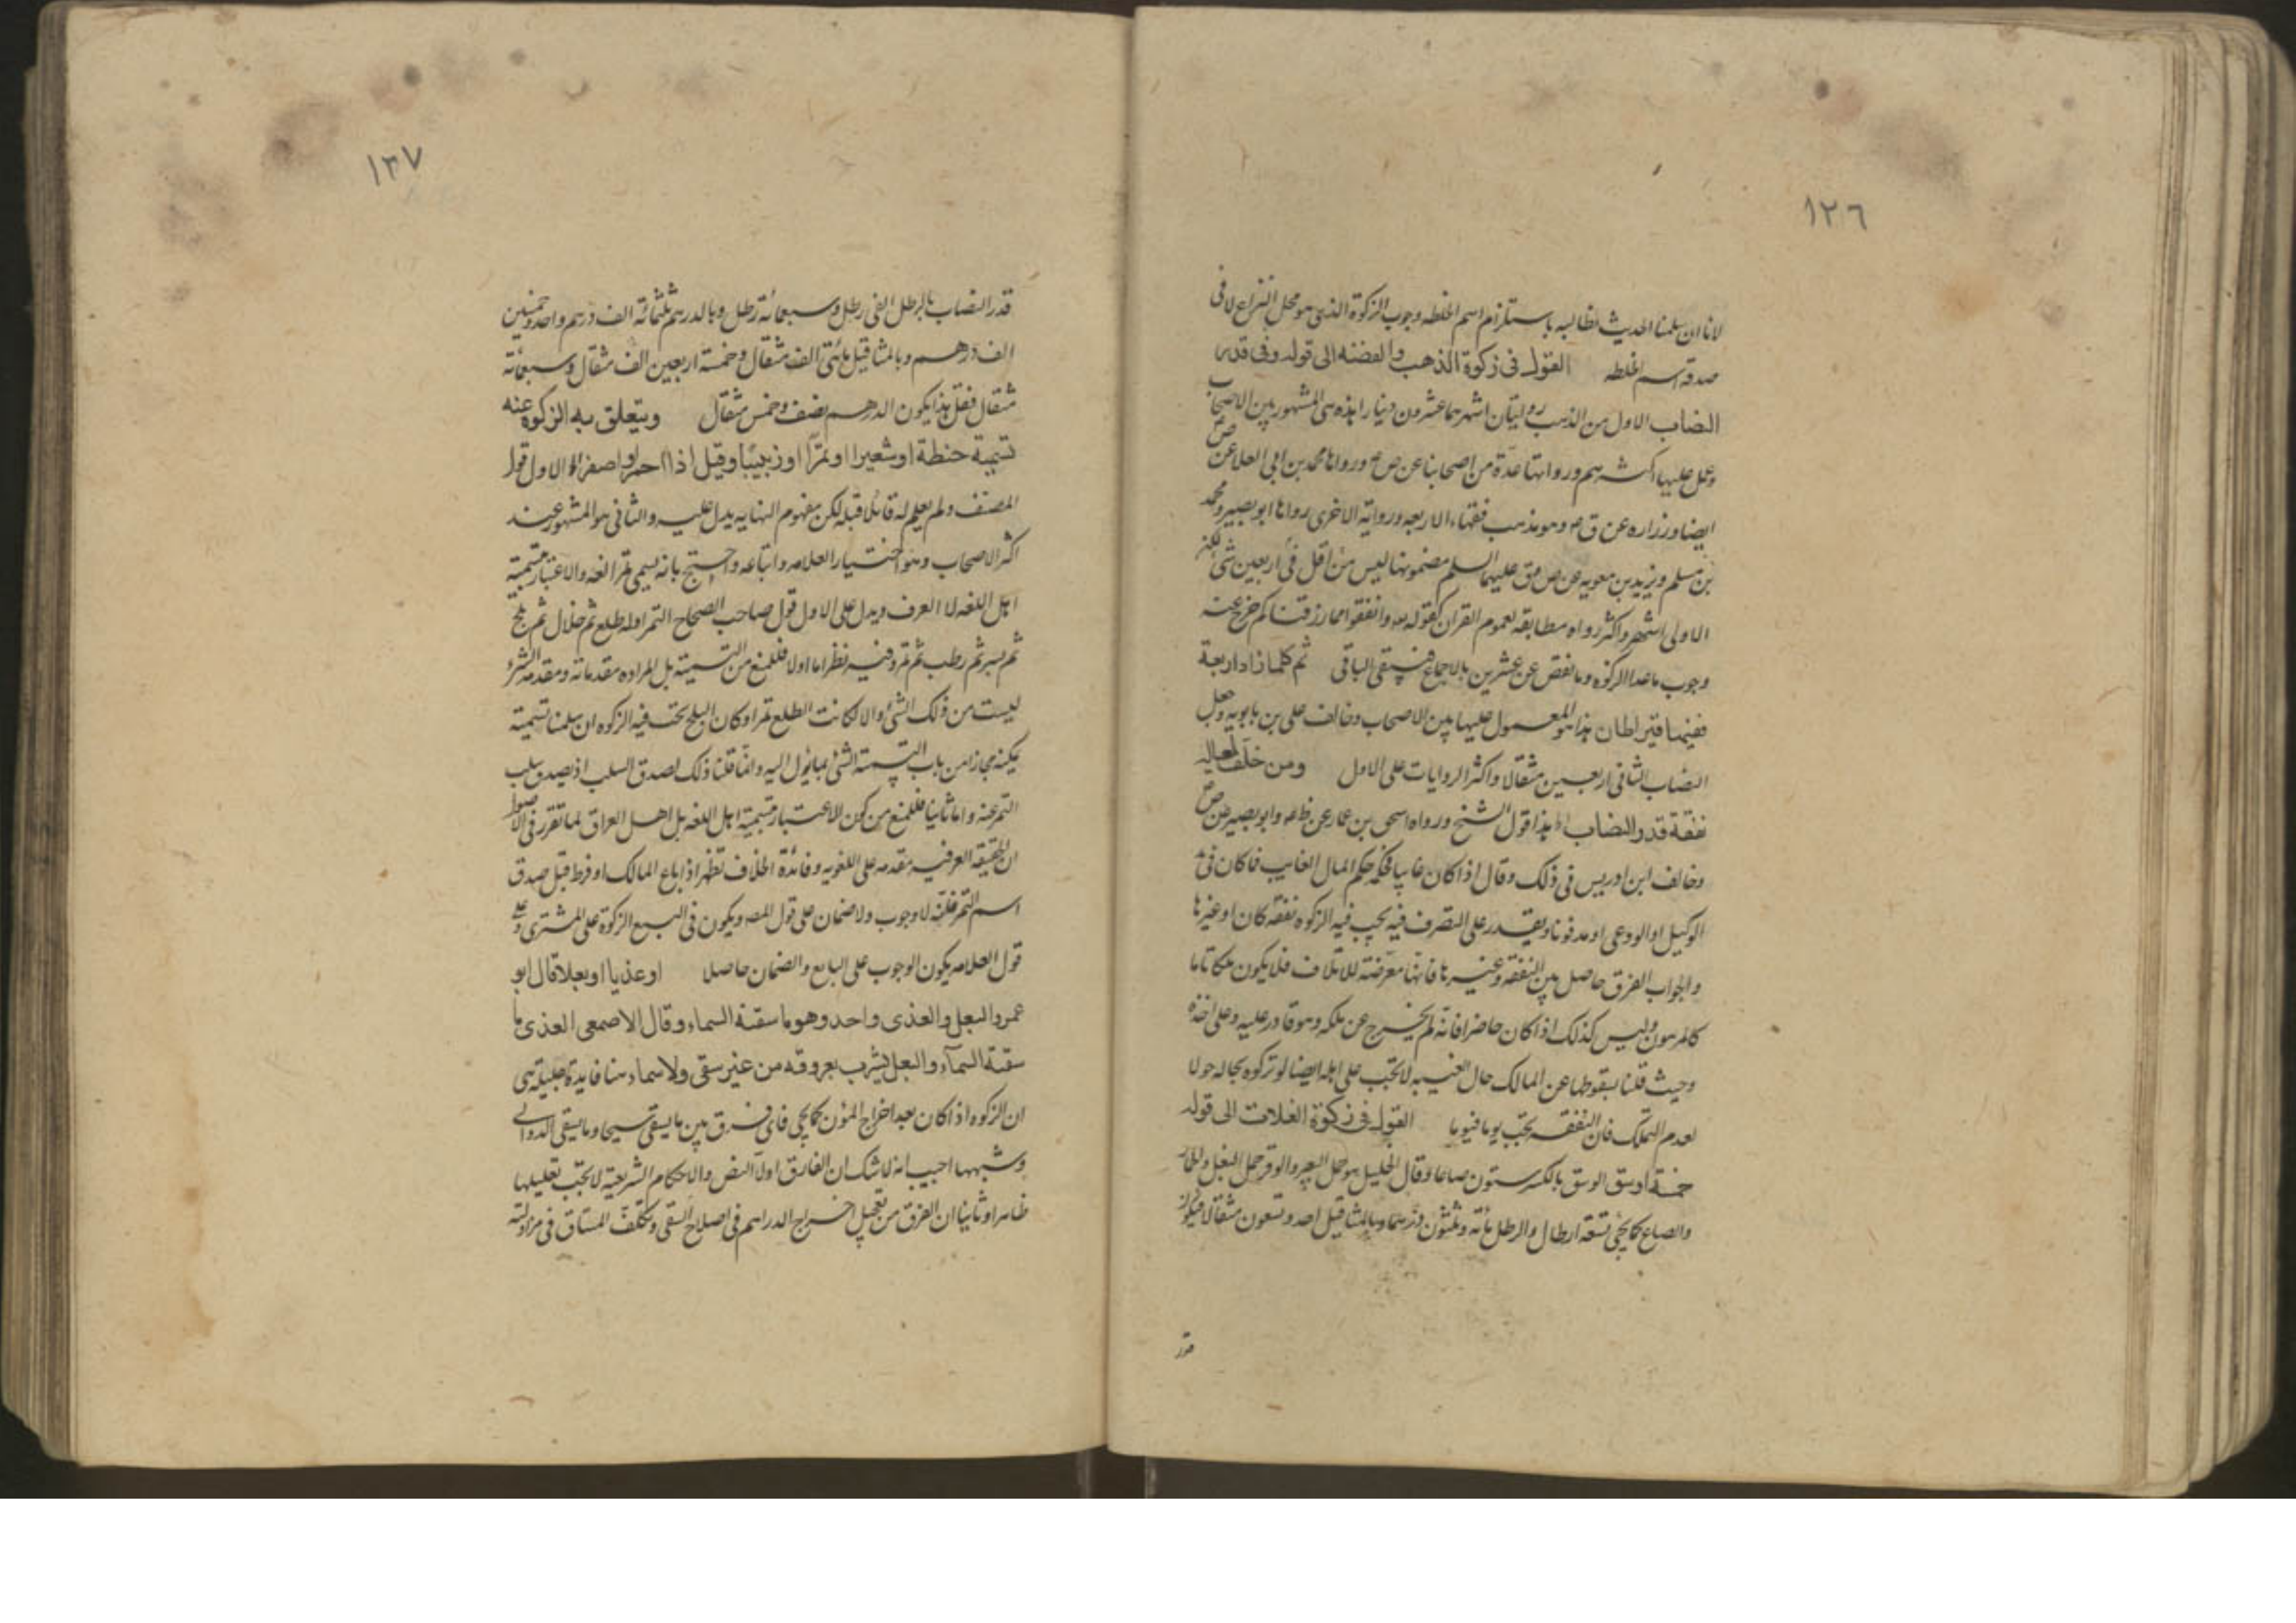 ١٢٦
لانا ان سلمنا الحديث نطالبه باستلزام اسم الخلطه وجوب الزكوة الذى هو محل النزاع لا فى
صدقه اسم الخلطه القول فى زكوة الذهب والفضه الى قوله وفى قدر
النصاب الاول من الذهب روايتان اشهرهما عشرون دينارا هذه هى المشهور بين الاصحاب
وعمل عليها اكثرهم ورواتها عدة من اصحابنا عن ص م ورواها محمد بن ابى العلا عن ص
ايضا وزراره عن ق م وهو مذهب فقهاء الاربعه ورواية الاخرى رواها ابو بصير ومحمد
بن مسلم ويزيد بن معويه عن ص وق عليهما السلم مضمونها ليس من اقل فى اربعين شئ لكن
الاولى اشهر واكثر رواه مطابقه لعموم القران كقوله تعـ وانفقوا مما رزقناكم خرج عنه
وجوب ما عدا الزكوه وما نقص عن عشرين بالاجماع فيبقى الباقى ثم كلما زاد اربعة
ففيها قيراطان هذا هو المعمول عليها بين الاصحاب وخالف على بن بابويه وجعل
النصاب الثانى اربعين مثقالا واكثر الروايات على الاول ومن خلف لعياله
نفقة قدر النصاب اه هذا قول الشيخ ورواه اسحق بن عمار عن ظم م وابو بصير عن ص
وخالف ابن ادريس فى ذلك وقال اذا كان غايبا فحكمه حكم المال الغايب فما كان فى يد
الوكيل او الودعى او مدفونا ويقدر على التصرف فيه يجب فيه الزكوه نفقه كان او غيرها
والجواب الفرق حاصل بين النفقه وغيرها فانها معرضة للاتلاف فلا يكون ملكا تاما
كالمرهون وليس كذلك اذا كان حاضرا فانه لم يخرج عن ملكه وهو قادر عليه وعلى اخذه
وحيث قلنا بسقوطها عن المالك حال الغيبه لا تجب على اهله ايضا لو تركوه بحاله حولا
لعدم التملك فان النفقه تجب يوما فيوما القول فى زكوة الغلات الى قوله
خمسة اوسق الوسق بالكسر ستون صاعا وقال الخليل هو حمل البعير والوقر حمل البغل والحمار
والصاع كما يجئ تسعة ارطال والرطل مائه وثلثون درهما وبالمثاقيل احد وتسعون مثقالا فيكون
قدر
١٢٧
قدر النصاب بالرطل الفى رطل وسبعمائة رطل وبالدرهم ثلثمائة الف درهم واحد وخمسين
الف درهم وبالمثاقيل مائتى الف مثقال وخمسة اربعين الف مثقال وسبعمائة
مثقال فقل هذا يكون الدرهم نصف وخمس مثقال ويتعلق به الزكوة عند
تسمية حنطة او شعيرا او تمرا او زبيبا وقيل اذا احمر او اصفر اه الاول قول
المصنف ولم يعلم له قائلا قبله لكن مفهوم النهايه يدل عليه والثانى هو المشهور عند
اكثر الاصحاب وهو اختيار العلامه واتباعه واحتج بانه يسمى تمرا لغه والاعتبار بتسمية
اهل اللغه لا العرف ويدل على الاول قول صاحب الصحاح التمر اوله طلع ثم خلال ثم بلح
ثم بسر ثم رطب ثم تمر وفيه نظر اما اولا فللمنع من التسمية بل المراد مقدماته ومقدمة الشئ
ليست من ذلك الشئ والا لكانت الطلع تمرا وكان البلح تجب فيه الزكوه ان سلمنا تسميته
لكنه مجازا من باب التسمية الشئ بما يئول اليه وانما قلنا ذلك لصدق السلب اذ يصدق سلب
التمر عنه واما ثانيا فللمنع من كون الاعتبار بتسمية اهل اللغه بل اهل العراق لما تقرر فى الاصول
ان الحقيقه العرفيه مقدمه على اللغويه وفائدة الخلاف تظهر اذا باع المالك او فرط قبل صدق
اسم التمر فانه لا وجوب ولا ضمان على قول المصـ ويكون فى البيع الزكوة على المشترى وعلى
قول العلامه يكون الوجوب على البايع والضمان حاصلا او عذيا او بعلا قال ابو
عمرو البعل والعذى واحد وهو ما سقته السماء وقال الاصمعى العذى ما
سقته السماء والبعل يشرب بعروقه من غير سقى ولا سماء هنا فايدة جليلة هى
ان الزكوه اذا كان بعد اخراج المؤن كما يجى فاى فرق بين ما يسقى سيحا وما يسقى بالدوالى
وشبهها اجيب انه لا شك ان الفارق اولا النص والاحكام الشرعية لا تجب تعليلها
ظاهرا وثانيا ان الفرق من تعجيل اخراج الدراهم فى اصلاح السقى وتكلف المشاق فى مزاولته